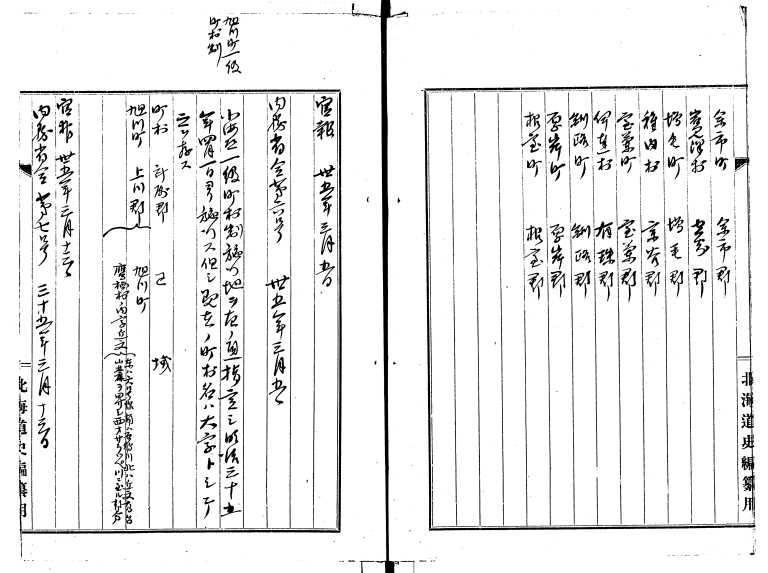 余市町 余市郡
岩内町 岩内郡
増毛町 増毛郡
稚内村 宗谷郡
室蘭町 室蘭郡
伊達村 有珠郡
釧路町 釧路郡
厚岸町 厚岸郡
根室町 根室郡
北海道史編纂用
旭川町一級
町村制
官報 卅五年三月五日
内務省令第六号 卅五年三月五日
北海道一級町村制施行地ヲ左ノ通指定シ明治三十五
年四月一日ヨリ施行ス但シ現在ノ町村名ハ大字トシテ
之ヲ存ス
町村 所属郡 区域
旭川町 上川郡 旭川町
鷹栖村ノ内字近文
官報 卅五年三月十三日
内務省令第七号 三十五年三月十三日
北海道史編纂用